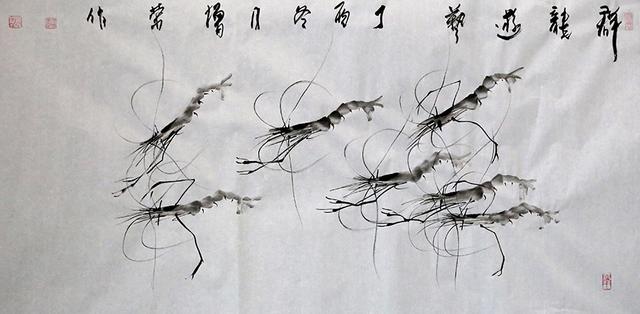 群龍遊藝 丁酉冬月增荣作